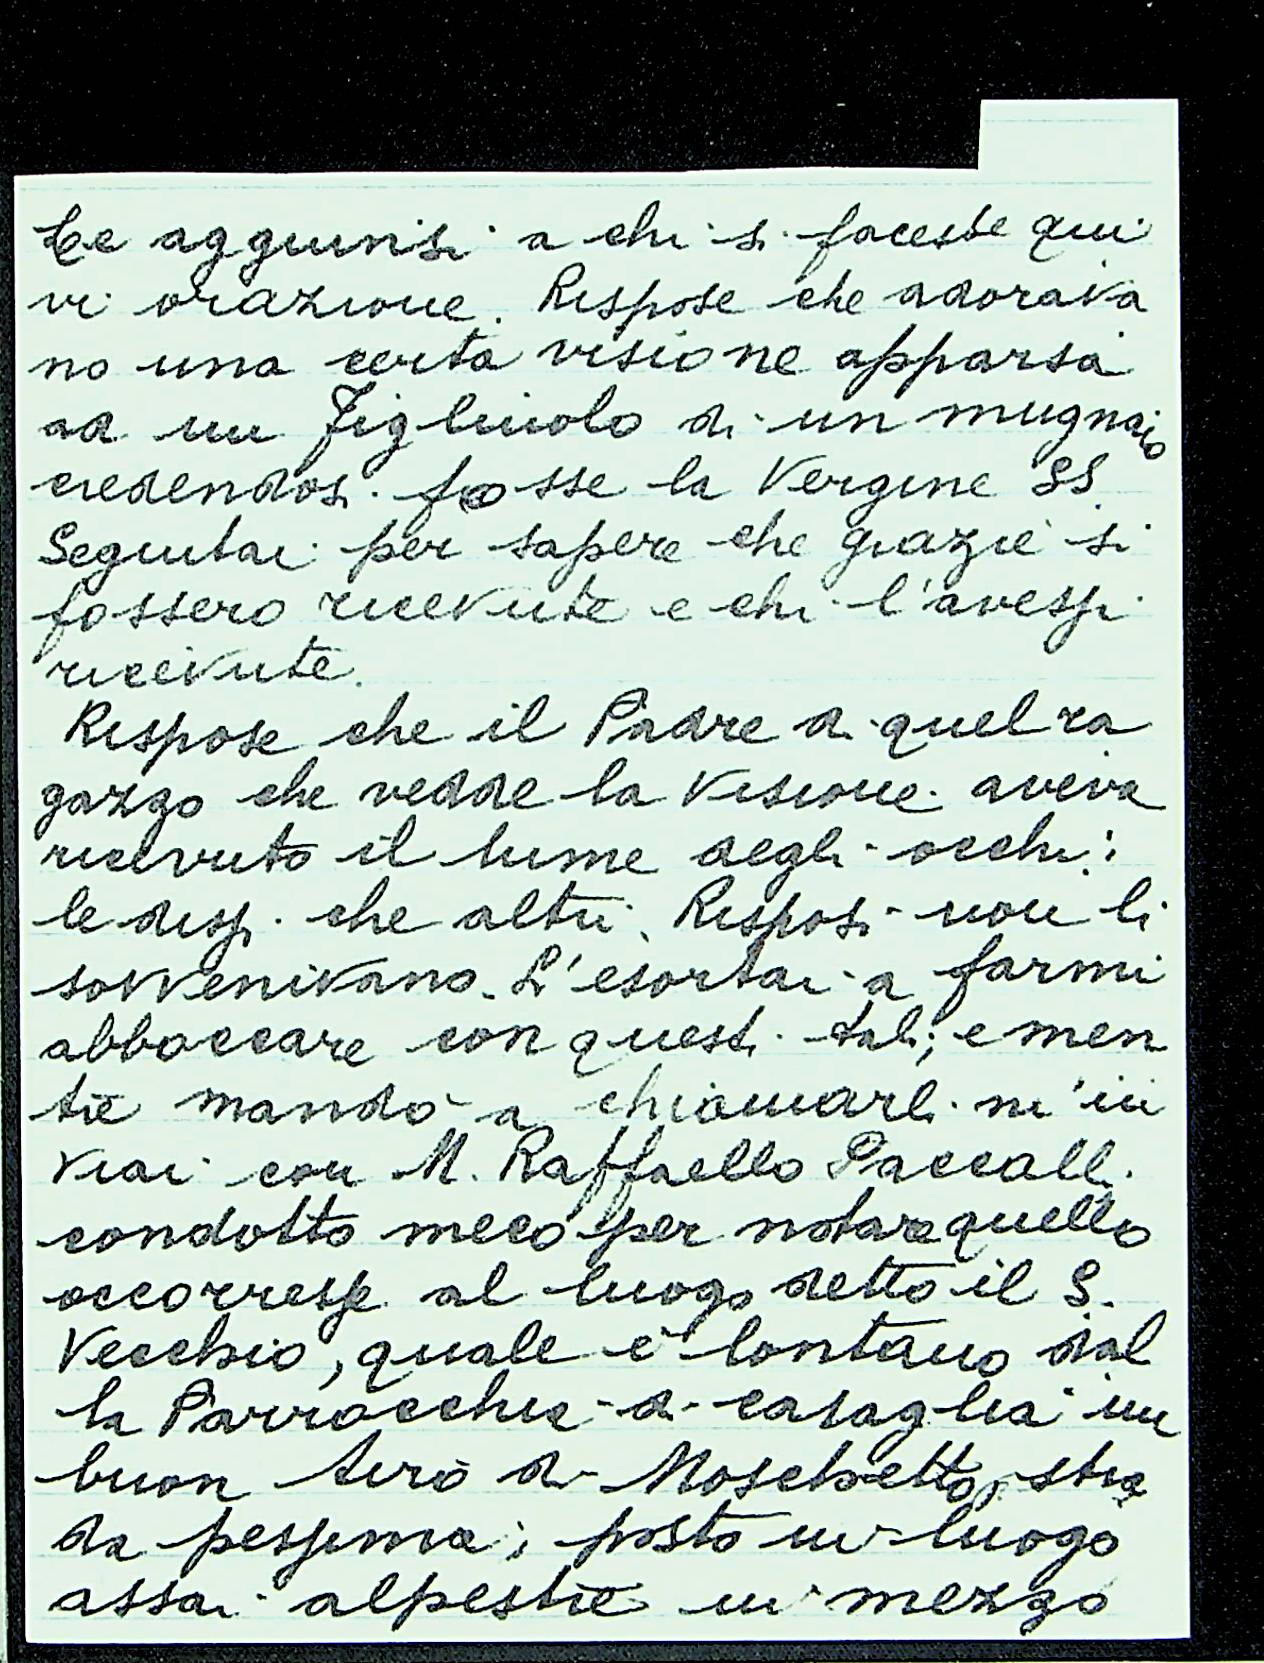 Le aggiunsi a chi si facesse qui
vi orazione. Rispose che adorava
no una certa visione apparsa
ad un Figliuolo di un mugnaio
credendosi fosse la Vergine SS
Seguitai per sapere che grazie si
fossero ricevute e chi l'avessi
ricevute.
Rispose che il Padre di quel ra
gazzo che vedde la Visione aveva
ricevuto il lume degli occhi:
le dissi che altri. Risposi non li
sovvenivano. L'esortai a farmi
abboccare con questi tali; e men
tre mandò a chiamarli m'in
viai con M. Raffaello Paccalli
condotto meco per notare quello
occorresse al luogo detto il S.
Vecchio, quale è lontano dal
la Parrocchia di Casaglia un
buon tiro di Moschetto, stra
da pessima; posto in luogo
assai alpestre in mezzo